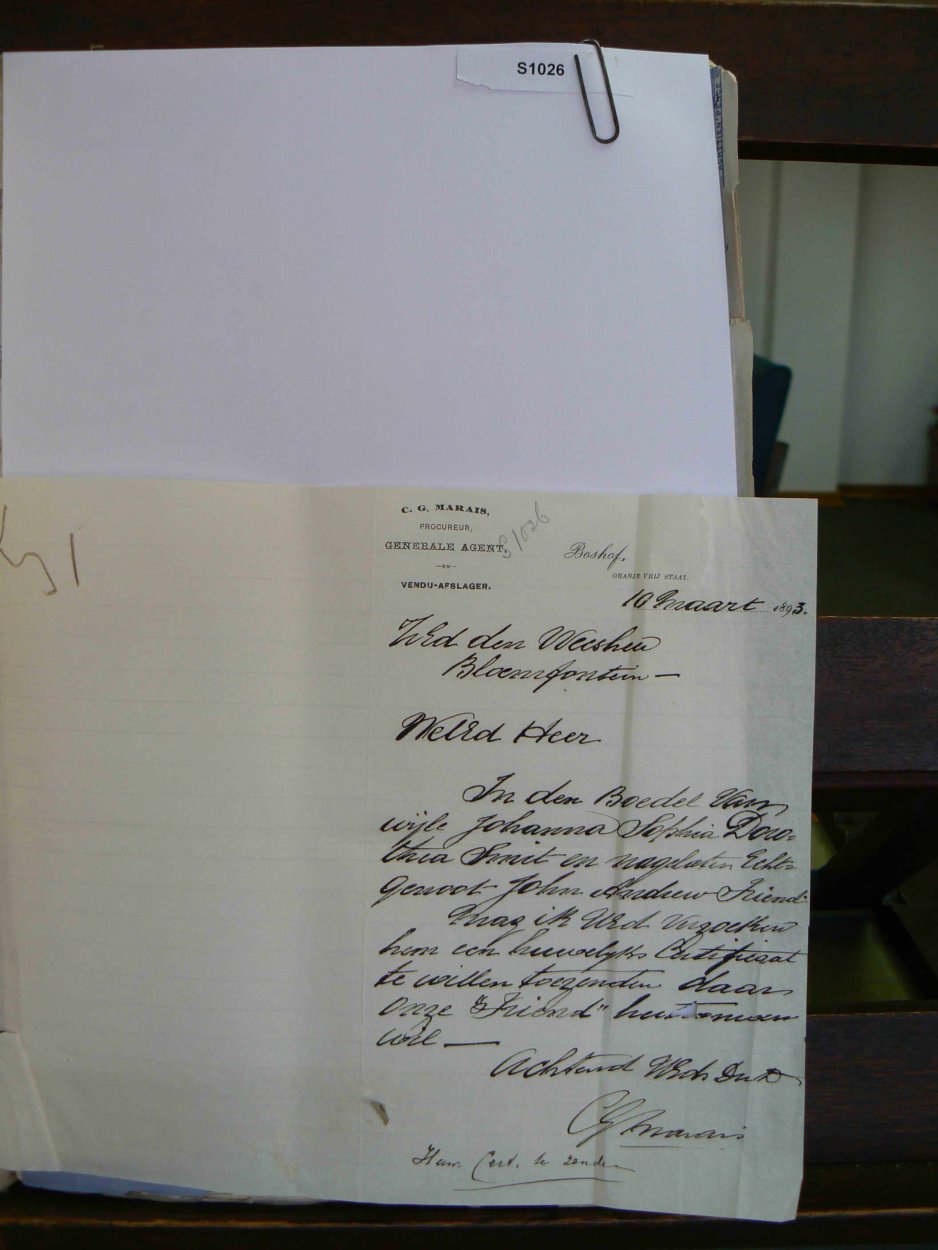 S1026
C. G. MARAIS,
PROCUREUR,
GENERALE AGENT,
—EN—
VENDU-AFSLAGER.
S1026
Boshof,
ORANJE VRIJ STAAT,
10 Maart 1893.
WEd den Weesheer
Bloemfontein —
WelEd Heer
In den Boedel Van
wijle Johanna Sophia Doro-
thea Smit en nagelaten Echt-
genoot John Andrew Friend
Mag ik UEd Verzoeken
hem een huwelyks Certificaat
te willen toezenden daar
onze "Friend" hertrouwen
wil —
Achtend UEds Dnr
CG Marais
Huw. Cert. te zenden